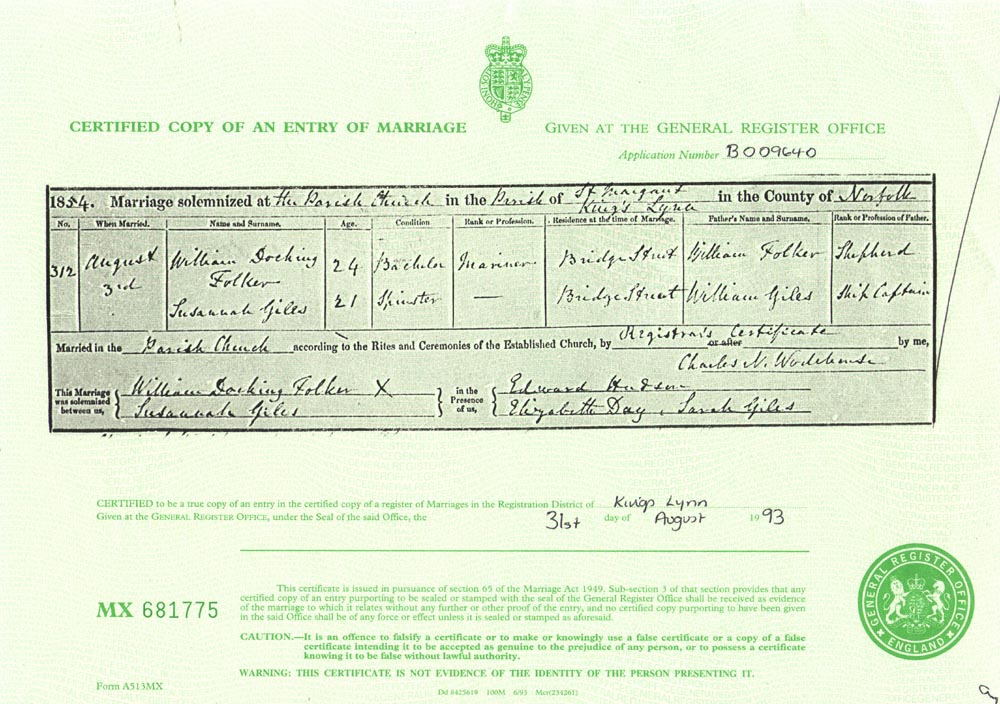 CERTIFIED COPY OF AN ENTRY OF MARRIAGE
GIVEN AT THE GENERAL REGISTER OFFICE
Application Number B009640
1854. Marriage solemnized at the Parish Church in the Parish of St Margaret King's Lynn in the County of Norfolk
No. When Married. Name and Surname. Age. Condition. Rank or Profession. Residence at the time of Marriage. Father's Name and Surname. Rank or Profession of Father.
312 August 3rd William Docking Folker 24 Bachelor Mariner Bridge Street William Folker Shepherd
Susannah Giles 21 Spinster — Bridge Street William Giles Ship Captain
Married in the Parish Church according to the Rites and Ceremonies of the Established Church, by Registrar's Certificate or after by me,
Charles N. Wodehouse
This Marriage was solemnized between us, William Docking Folker X Susannah Giles
in the Presence of us, Edward Hudson Elizabeth Day, Sarah Giles
CERTIFIED to be a true copy of an entry in the certified copy of a register of Marriages in the Registration District of Kings Lynn
Given at the GENERAL REGISTER OFFICE, under the Seal of the said Office, the 31st day of August 1993
This certificate is issued in pursuance of section 65 of the Marriage Act 1949. Sub-section 3 of that section provides that any
certified copy of an entry purporting to be sealed or stamped with the seal of the General Register Office shall be received as evidence
of the marriage to which it relates without any further or other proof of the entry, and no certified copy purporting to have been given
in the said Office shall be of any force or effect unless it is sealed or stamped as aforesaid.
MX 681775
CAUTION.—It is an offence to falsify a certificate or to make or knowingly use a false certificate or a copy of a false
certificate intending it to be accepted as genuine to the prejudice of any person, or to possess a certificate
knowing it to be false without lawful authority.
WARNING: THIS CERTIFICATE IS NOT EVIDENCE OF THE IDENTITY OF THE PERSON PRESENTING IT.
GENERAL REGISTER OFFICE ENGLAND
Form A513MX
Dd 8425619 100M 6/93 Mcr(234261)